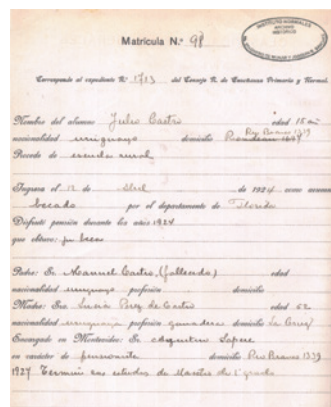 INSTITUTOS NORMALES
Matrícula N.º 98
Corresponde al expediente N.º 1713 del Consejo N. de Enseñanza Primaria y Normal.
Nombre del alumno Julio Castro edad 15 añ
Río Branco 1339
nacionalidad uruguayo domicilio Rondeau
Procede de escuela rural
Ingresa el 12 de Abril de 1924 como acuerd
becado por el departamento de Florida
Disfrutó pensión durante los años 1924
que obtuvo: por beca
Padre: Sr. Manuel Castro, (fallecido) edad
nacionalidad uruguaya profesión domicilio
Madre: Sra Lucía Pérez de Castro edad 52
nacionalidad uruguaya profesión ganadera domicilio La Cruz
Encargado en Montevideo: Sr. Agustín
en carácter de domicilio Río Branco 1339
1927 Terminó sus estudios de Maestro de 1er grado